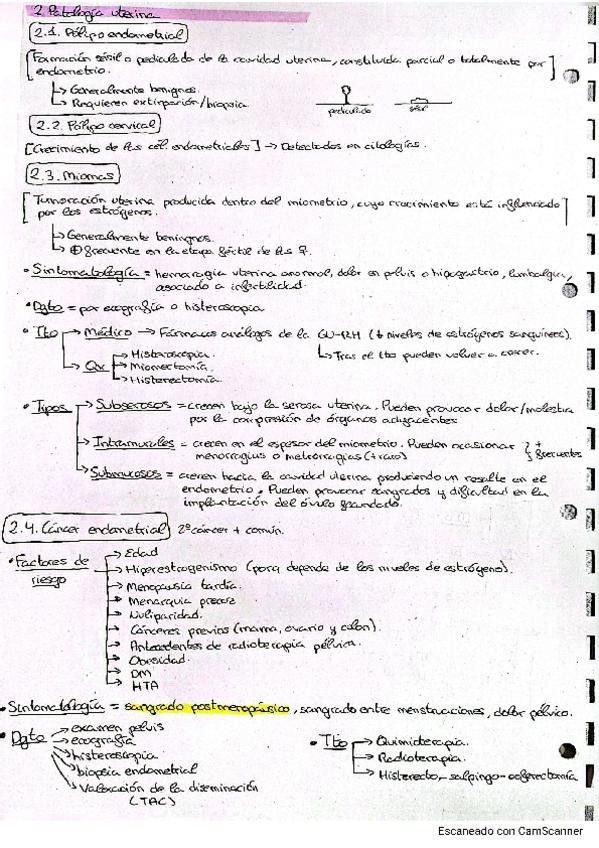 2. Patología uterina
2.1. Pólipo endometrial
[Formación sésil o pediculada de la cavidad uterina, constituida parcial o totalmente por
endometrio.]
↳ Generalmente benignos.
↳ Requieren extirpación/biopsia.
pediculado sésil
2.2. Pólipo cervical
[Crecimiento de las cél endometriales] → Detectados en citologías.
2.3. Miomas
[Tumoración uterina producida dentro del miometrio, cuyo crecimiento está influenciado
por los estrógenos.]
↳ Generalmente benignos.
↳ ⊕ frecuente en la etapa fértil de las ♀.
• Sintomatología = hemorragia uterina anormal, dolor en pelvis o hipogastrio, lumbalgia,
asociado a infertilidad.
• Dgto = por ecografía o histeroscopia
• Tto → Médico → Fármacos análogos de la GU-RH (↓ niveles de estrógenos sanguíneos).
↳ Tras el tto pueden volver a crecer.
→ Qx → Histeroscopia.
→ Miomectomía.
→ Histerectomía.
• Tipos → Subserosos = crecen bajo la serosa uterina. Pueden provocar dolor/molestia
por la compresión de órganos adyacentes
→ Intramurales = crecen en el espesor del miometrio. Pueden ocasionar } +
menorragias o metrorragias (+raro) frecuentes
→ Submucosos = crecen hacia la cavidad uterina produciendo un resalte en el
endometrio. Pueden provocar sangrados y dificultad en la
implantación del óvulo
2.4. Cáncer endometrial 2º cáncer + común.
• Factores de
riesgo
→ Edad
→ Hiperestrogenismo (porq depende de los niveles de estrógeno).
→ Menopausia tardía.
→ Menarquia precoz
→ Nuliparidad.
→ Cánceres previos (mama, ovario y colon).
→ Antecedentes de radioterapia pélvica.
→ Obesidad.
→ DM
→ HTA
• Sintomatología = sangrado postmenopáusico, sangrado entre menstruaciones, dolor pélvico.
• Dgto → examen pelvis
→ ecografía
→ histeroscopia
→ biopsia endometrial
→ Valoración de la diseminación
(TAC)
• Tto → Quimioterapia.
→ Radioterapia.
→ Histerecto-salpingo-ooforectomía
Escaneado con CamScanner